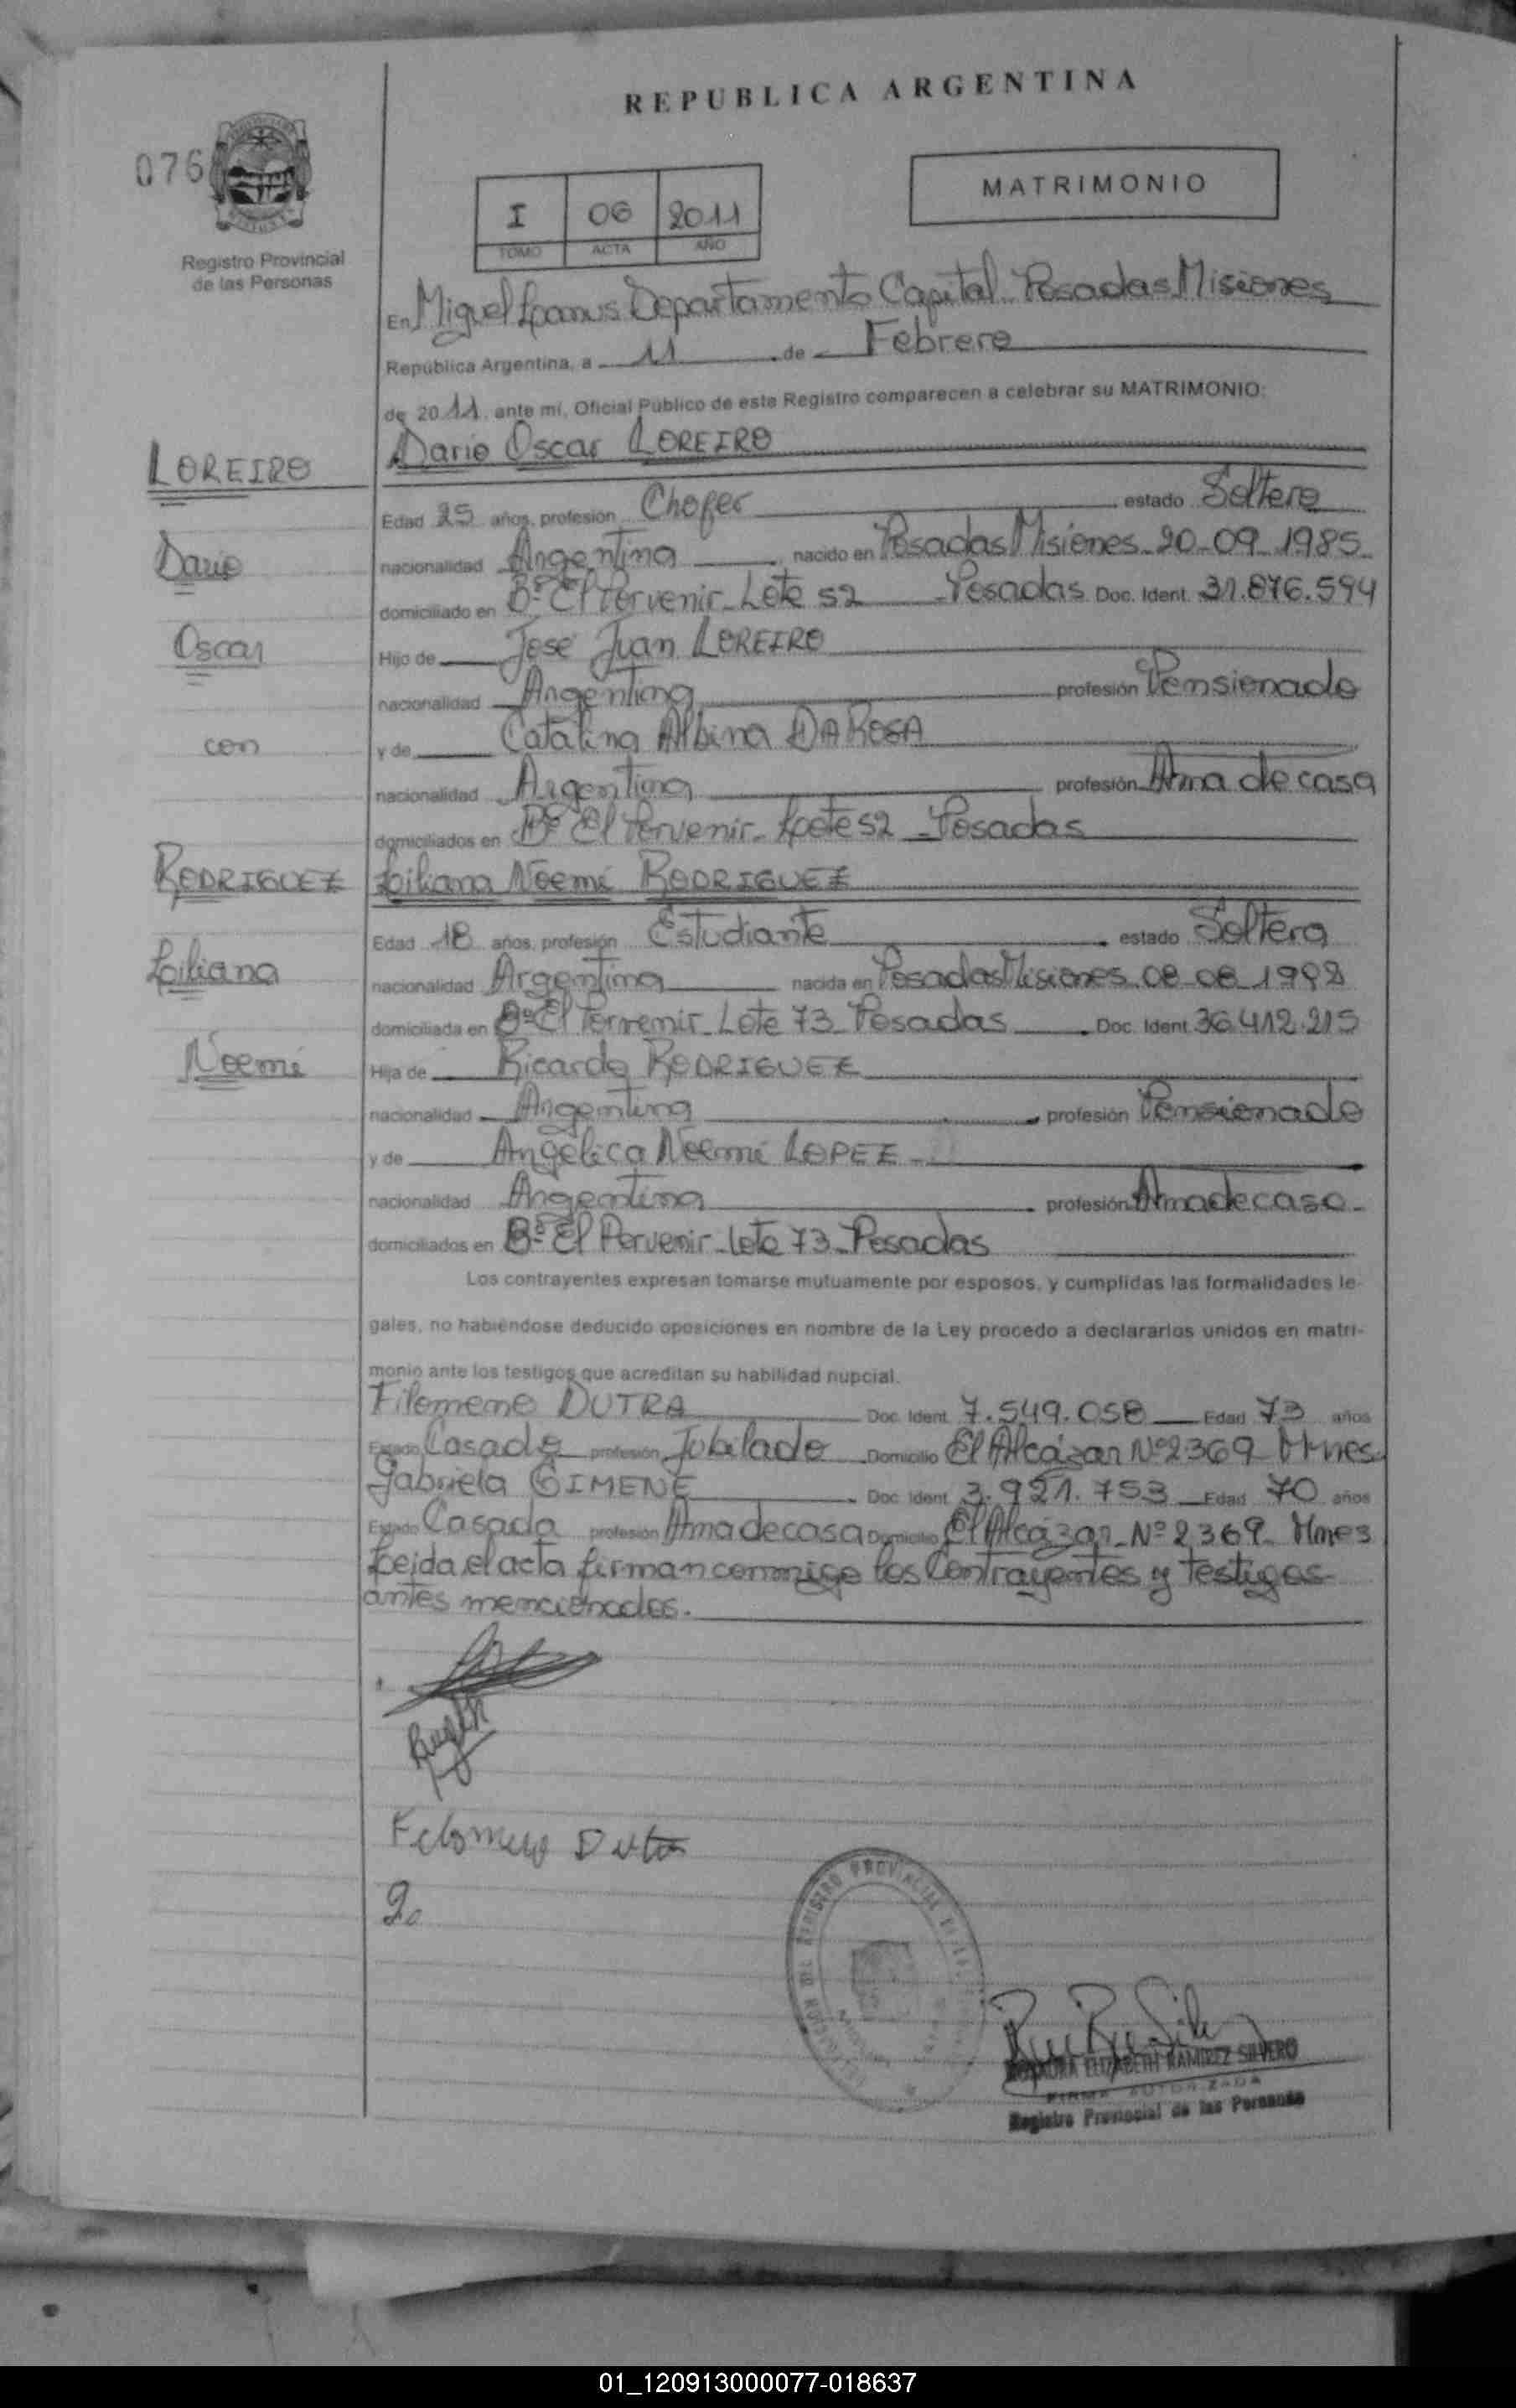 REPUBLICA ARGENTINA
076
MATRIMONIO
I 06 2011
TOMO ACTA AÑO
Registro Provincial
de las Personas
En Miguel Lanus Departamento Capital Posadas Misiones
República Argentina, a 11 de Febrero
de 2011, ante mí, Oficial Público de este Registro comparecen a celebrar su MATRIMONIO:
LOREIRO Dario Oscar LOREIRO
Edad 25 años, profesión Chofer estado Soltero
Dario nacionalidad Argentina nacido en Posadas Misiones 20-09-1985
domiciliado en Bº El Porvenir-Lote 52 Posadas Doc. Ident. 31.876.594
Oscar Hijo de José Juan LOREIRO
nacionalidad Argentina profesión Pensionado
con y de Catalina Albina DA ROSA
nacionalidad Argentina profesión Ama de casa
domiciliados en Bº El Porvenir-Lote 52-Posadas
RODRIGUEZ Liliana Noemi RODRIGUEZ
Edad 18 años, profesión Estudiante estado Soltera
Liliana nacionalidad Argentina nacida en Posadas Misiones 08-08-1992
domiciliada en Bº El Porvenir-Lote 73-Posadas Doc. Ident. 36.412.215
Noemi Hija de Ricardo RODRIGUEZ
nacionalidad Argentina profesión Pensionado
y de Angélica Noemi LOPEZ
nacionalidad Argentina profesión Ama de casa
domiciliados en Bº El Porvenir-Lote 73-Posadas
Los contrayentes expresan tomarse mutuamente por esposos, y cumplidas las formalidades le-
gales, no habiéndose deducido oposiciones en nombre de la Ley procedo a declararlos unidos en matri-
monio ante los testigos que acreditan su habilidad nupcial.
Filomeno DUTRA Doc. Ident. 7.549.058 Edad 73 años
Estado Casado profesión Jubilado Domicilio El Alcázar Nº 2369 Mnes
Gabriela GIMENE Doc. Ident. 3.921.753 Edad 70 años
Estado Casada profesión Ama de casa Domicilio El Alcázar-Nº 2369 Mnes
Leida el acta firman conmigo los Contrayentes y testigos
antes mencionados.
Filomeno Dutra
REGISTRO PROVINCIAL
ROSAURA ELIZABETH RAMIREZ SILVERO
FIRMA AUTORIZADA
Registro Provincial de las Personas
01_120913000077-018637